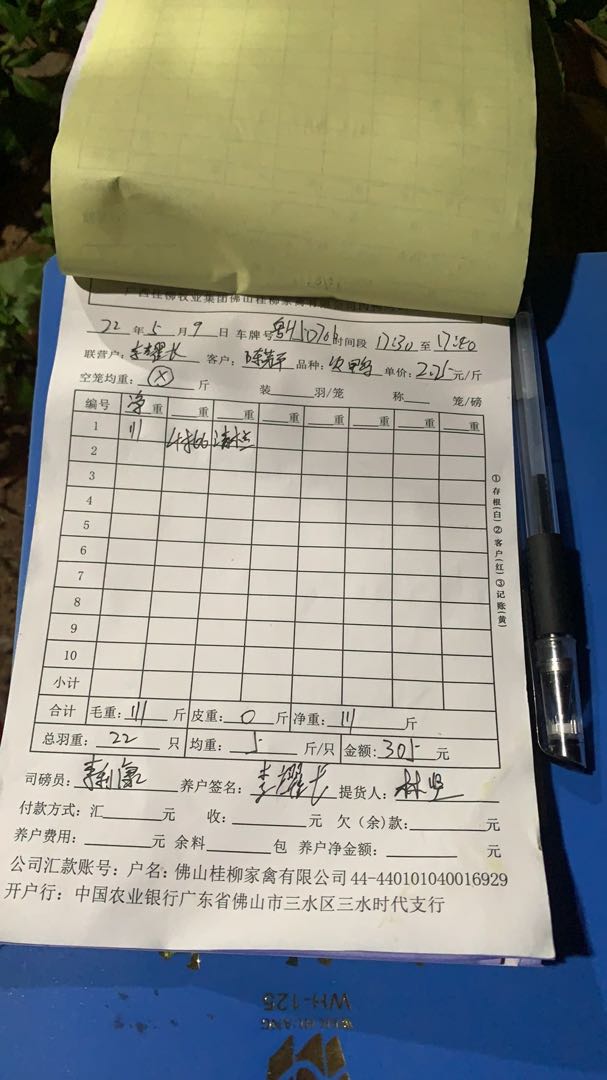 22年5月9日 车牌号 时间段 17:30至17:40
联营户: 客户: 品种: 单价:2.75元/斤
空笼均重: 斤 装 羽/笼 称 笼/磅
编号 净重 重 重 重 重 重 重
1 111
2
3
4
5
6
7
8
9
10
小计
合计 毛重:111斤 皮重:0斤 净重:111斤
总羽重:22只 均重:5斤/只 金额:305元
司磅员:李利 养户签名:李耀长 提货人:林坚
付款方式:汇 元 收: 元 欠(余)款: 元
养户费用: 元 余料 包 养户净金额: 元
公司汇款账号:户名:佛山桂柳家禽有限公司44-440101040016929
开户行:中国农业银行广东省佛山市三水区三水时代支行
①存根(白)②客户(红)③记账(黄)
WH-125